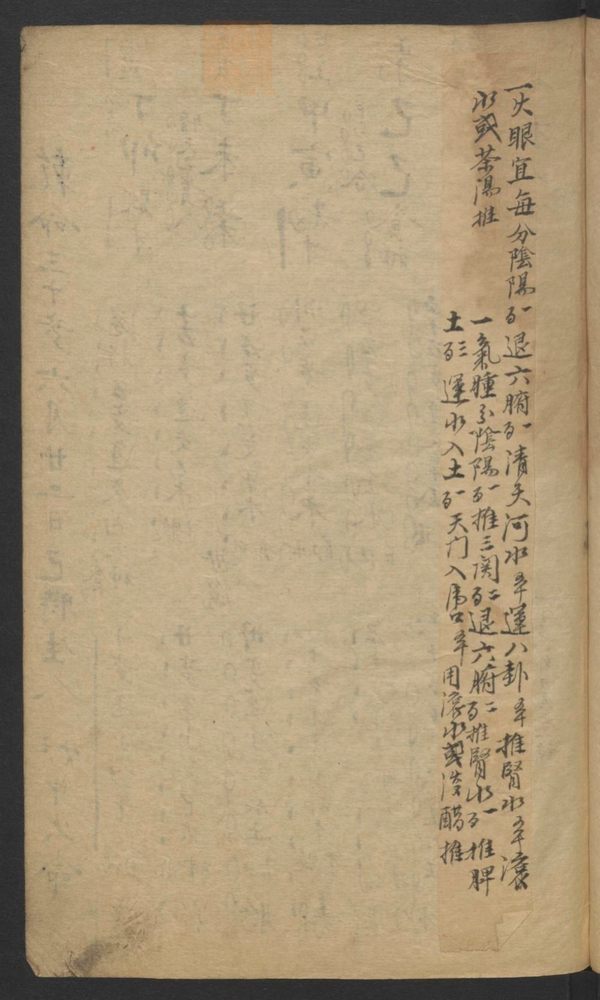 一火眼宜每分陰陽一百退六腑一百清天河水卒運八卦卒推腎水卒滾
水或茶湯推
一氣腫分陰陽一百推三関二百退六腑二百推腎水一百推脾
土三百運水入土一百天门入虎口卒用滾水或淡醋推